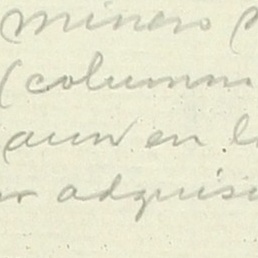 minero
(column
aun en l
adquisi